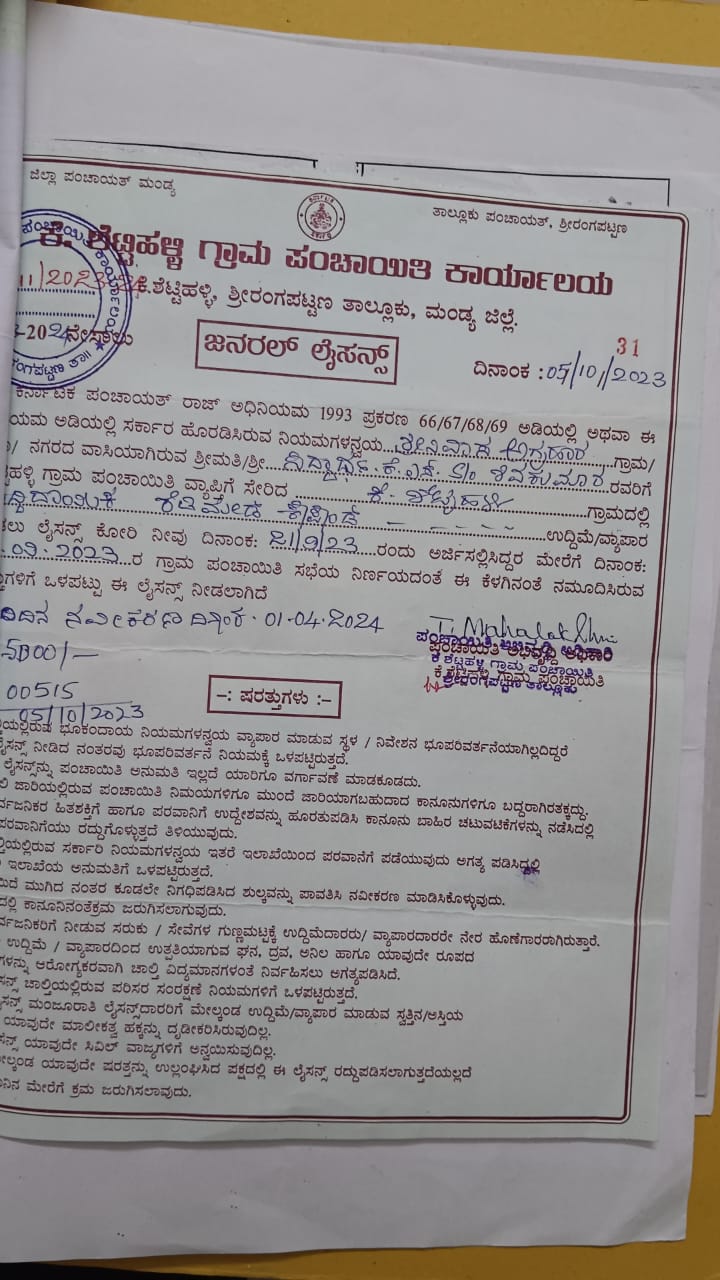 ಜಿಲ್ಲಾ ಪಂಚಾಯತ್ ಮಂಡ್ಯ
ತಾಲ್ಲೂಕು ಪಂಚಾಯತ್, ಶ್ರೀರಂಗಪಟ್ಟಣ
ಕೆ. ಶೆಟ್ಟಿಹಳ್ಳಿ ಗ್ರಾಮ ಪಂಚಾಯಿತಿ ಕಾರ್ಯಾಲಯ
ಕೆ.ಶೆಟ್ಟಿಹಳ್ಳಿ, ಶ್ರೀರಂಗಪಟ್ಟಣ ತಾಲ್ಲೂಕು, ಮಂಡ್ಯ ಜಿಲ್ಲೆ.
31
ಜನರಲ್ ಲೈಸನ್ಸ್
ದಿನಾಂಕ : 05/10/2023
ಕರ್ನಾಟಕ ಪಂಚಾಯತ್ ರಾಜ್ ಅಧಿನಿಯಮ 1993 ಪ್ರಕರಣ 66/67/68/69 ಅಡಿಯಲ್ಲಿ ಅಥವಾ ಈ
ಯಮ ಅಡಿಯಲ್ಲಿ ಸರ್ಕಾರ ಹೊರಡಿಸಿರುವ ನಿಯಮಗಳನ್ವಯ ಶ್ರೀನಿವಾಸ ಅಗ್ರಹಾರ ಗ್ರಾಮ/
/ ನಗರದ ವಾಸಿಯಾಗಿರುವ ಶ್ರೀಮತಿ/ಶ್ರೀ ಸಿದ್ಧಾರ್ಥ. ಕೆ.ಎಸ್. S/o ಶಿವಕುಮಾರ ರವರಿಗೆ
ಹಳ್ಳಿ ಗ್ರಾಮ ಪಂಚಾಯಿತಿ ವ್ಯಾಪ್ತಿಗೆ ಸೇರಿದ ಕೆ. ಶೆಟ್ಟಿಹಳ್ಳಿ ಗ್ರಾಮದಲ್ಲಿ
ರೆಡಿಮೇಡ್ ಉದ್ದಿಮೆ/ವ್ಯಾಪಾರ
ಲು ಲೈಸನ್ಸ್ ಕೋರಿ ನೀವು ದಿನಾಂಕ: 21/9/23 ರಂದು ಅರ್ಜಿಸಲ್ಲಿಸಿದ್ದರ ಮೇರೆಗೆ ದಿನಾಂಕ:
.09.2023 ರ ಗ್ರಾಮ ಪಂಚಾಯಿತಿ ಸಭೆಯ ನಿರ್ಣಯದಂತೆ ಈ ಕೆಳಗಿನಂತೆ ನಮೂದಿಸಿರುವ
ಗಳಿಗೆ ಒಳಪಟ್ಟು ಈ ಲೈಸನ್ಸ್ ನೀಡಲಾಗಿದೆ
ನವೀಕರಣ ದಿನಾಂಕ. 01-04-2024
T. Mahalakshmi
ಪಂಚಾಯಿತಿ ಅಭಿವೃದ್ಧಿ ಅಧಿಕಾರಿ
ಕೆ ಶೆಟ್ಟಿಹಳ್ಳಿ ಗ್ರಾಮ ಪಂಚಾಯಿತಿ
ಶ್ರೀರಂಗಪಟ್ಟಣ ತಾಲ್ಲೂಕು
500/-
00515
05/10/2023
-: ಷರತ್ತುಗಳು :-
ಯಲ್ಲಿರುವ ಭೂಕಂದಾಯ ನಿಯಮಗಳನ್ವಯ ವ್ಯಾಪಾರ ಮಾಡುವ ಸ್ಥಳ / ನಿವೇಶನ ಭೂಪರಿವರ್ತನೆಯಾಗಿಲ್ಲದಿದ್ದರೆ
ಸೆನ್ಸ್ ನೀಡಿದ ನಂತರವು ಭೂಪರಿವರ್ತನೆ ನಿಯಮಕ್ಕೆ ಒಳಪಟ್ಟಿರುತ್ತದೆ.
ಲೈಸನ್ಸ್‌ನ್ನು ಪಂಚಾಯಿತಿ ಅನುಮತಿ ಇಲ್ಲದೆ ಯಾರಿಗೂ ವರ್ಗಾವಣೆ ಮಾಡಕೂಡದು.
ಲಿ ಜಾರಿಯಲ್ಲಿರುವ ಪಂಚಾಯಿತಿ ನಿಮಯಗಳಿಗೂ ಮುಂದೆ ಜಾರಿಯಾಗಬಹುದಾದ ಕಾನೂನುಗಳಿಗೂ ಬದ್ದರಾಗಿರತಕ್ಕದ್ದು.
ರ್ವಜನಿಕರ ಹಿತಶಕ್ತಿಗೆ ಹಾಗೂ ಪರವಾನಿಗೆ ಉದ್ದೇಶವನ್ನು ಹೊರತುಪಡಿಸಿ ಕಾನೂನು ಬಾಹಿರ ಚಟುವಟಿಕೆಗಳನ್ನು ನಡೆಸಿದಲ್ಲಿ
ಪರವಾನಿಗೆಯು ರದ್ದುಗೊಳ್ಳುತ್ತದೆ ತಿಳಿಯುವುದು.
ಯಲ್ಲಿರುವ ಸರ್ಕಾರಿ ನಿಯಮಗಳನ್ವಯ ಇತರೆ ಇಲಾಖೆಯಿಂದ ಪರವಾನೆಗೆ ಪಡೆಯುವುದು ಅಗತ್ಯ ಪಡಿಸಿದ್ದಲ್ಲಿ
ಇಲಾಖೆಯ ಅನುಮತಿಗೆ ಒಳಪಟ್ಟಿರುತ್ತದೆ.
ಮುಗಿದ ನಂತರ ಕೂಡಲೇ ನಿಗಧಿಪಡಿಸಿದ ಶುಲ್ಕವನ್ನು ಪಾವತಿಸಿ ನವೀಕರಣ ಮಾಡಿಸಿಕೊಳ್ಳುವುದು.
ದಲ್ಲಿ ಕಾನೂನಿನಂತೆಕ್ರಮ ಜರುಗಿಸಲಾಗುವುದು.
ರ್ವಜನಿಕರಿಗೆ ನೀಡುವ ಸರುಕು / ಸೇವೆಗಳ ಗುಣ್ಣಮಟ್ಟಕ್ಕೆ ಉದ್ದಿಮೆದಾರರು/ ವ್ಯಾಪಾರದಾರರೇ ನೇರ ಹೊಣೆಗಾರರಾಗಿರುತ್ತಾರೆ.
ಉದ್ದಿಮೆ / ವ್ಯಾಪಾರದಿಂದ ಉತ್ಪತಿಯಾಗುವ ಘನ, ದ್ರವ, ಅನಿಲ ಹಾಗೂ ಯಾವುದೇ ರೂಪದ
ಗಳನ್ನು ಆರೋಗ್ಯಕರವಾಗಿ ಚಾಲ್ತಿ ವಿದ್ಯಮಾನಗಳಂತೆ ನಿರ್ವಹಿಸಲು ಅಗತ್ಯಪಡಿಸಿದೆ.
ಸನ್ಸ್ ಚಾಲ್ತಿಯಲ್ಲಿರುವ ಪರಿಸರ ಸಂರಕ್ಷಣೆ ನಿಯಮಗಳಿಗೆ ಒಳಪಟ್ಟಿರುತ್ತದೆ.
ಸನ್ಸ್ ಮಂಜೂರಾತಿ ಲೈಸನ್ಸ್‌ದಾರರಿಗೆ ಮೇಲ್ಕಂಡ ಉದ್ದಿಮೆ/ವ್ಯಾಪಾರ ಮಾಡುವ ಸ್ವತ್ತಿನ/ಆಸ್ತಿಯ
ಯಾವುದೇ ಮಾಲೀಕತ್ವ ಹಕ್ಕನ್ನು ದೃಡೀಕರಿಸಿರುವುದಿಲ್ಲ.
ಸನ್ಸ್ ಯಾವುದೇ ಸಿವಿಲ್ ವಾಜ್ಯಗಳಿಗೆ ಅನ್ವಯಿಸುವುದಿಲ್ಲ.
ಮೇಲ್ಕಂಡ ಯಾವುದೇ ಷರತ್ತನ್ನು ಉಲ್ಲಂಘಿಸಿದ ಪಕ್ಷದಲ್ಲಿ ಈ ಲೈಸನ್ಸ್ ರದ್ದುಪಡಿಸಲಾಗುತ್ತದೆಯಲ್ಲದೆ
ನಿನ ಮೇರೆಗೆ ಕ್ರಮ ಜರುಗಿಸಲಾವುದು.